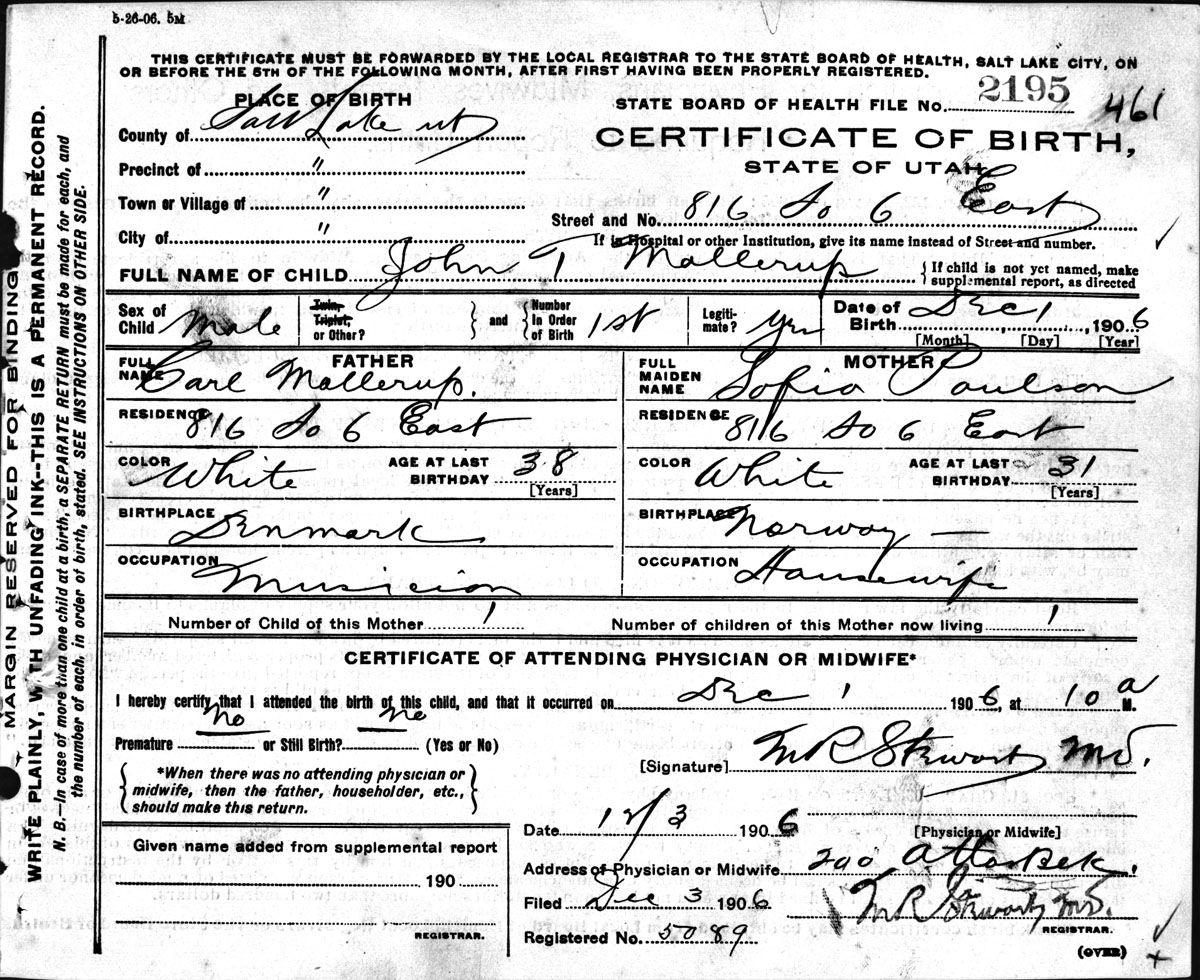 5-26-06. 5M
THIS CERTIFICATE MUST BE FORWARDED BY THE LOCAL REGISTRAR TO THE STATE BOARD OF HEALTH, SALT LAKE CITY, ON
OR BEFORE THE 5TH OF THE FOLLOWING MONTH, AFTER FIRST HAVING BEEN PROPERLY REGISTERED.
PLACE OF BIRTH
STATE BOARD OF HEALTH FILE No. 2195 461
County of Salt Lake ut
CERTIFICATE OF BIRTH,
STATE OF UTAH
Precinct of "
Town or Village of "
Street and No. 816 So 6 East
City of "
If in Hospital or other Institution, give its name instead of Street and number.
FULL NAME OF CHILD John T Mollerup { If child is not yet named, make
supplemental report, as directed
Sex of Child Male
Twin, Triplet, or Other? } and { Number in Order of Birth 1st
Legitimate? Yes
Date of Birth Dec 1, 1906
[Month] [Day] [Year]
FATHER
FULL NAME Carl Mollerup.
RESIDENCE 816 So 6 East
COLOR White AGE AT LAST BIRTHDAY 38
[Years]
BIRTHPLACE Denmark
OCCUPATION Musicion
MOTHER
FULL MAIDEN NAME Sofia Poulson
RESIDENCE 816 So 6 East
COLOR White AGE AT LAST BIRTHDAY 31
[Years]
BIRTHPLACE Norway
OCCUPATION Housewife
Number of Child of this Mother 1 Number of children of this Mother now living 1
CERTIFICATE OF ATTENDING PHYSICIAN OR MIDWIFE*
I hereby certify that I attended the birth of this child, and that it occurred on Dec 1 1906, at 10 a M.
Premature No or Still Birth? No (Yes or No)
{ *When there was no attending physician or
midwife, then the father, householder, etc.,
should make this return. }
[Signature] M R Stewart MD.
[Physician or Midwife]
Date 12/3 1906
Address of Physician or Midwife 200
Filed Dec 3 1906 M R Stewart MD.
REGISTRAR.
Registered No. 5089
(OVER)
Given name added from supplemental report
190
REGISTRAR.
MARGIN RESERVED FOR BINDING
WRITE PLAINLY, WITH UNFADING INK--THIS IS A PERMANENT RECORD.
N. B.—In case of more than one child at a birth, a SEPARATE RETURN must be made for each, and
the number of each, in order of birth, stated. SEE INSTRUCTIONS ON OTHER SIDE.